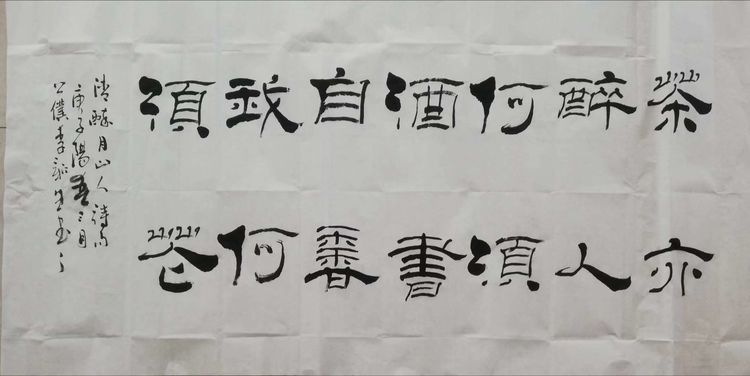 茶亦
醉人
何須
酒書
自香
我何
須花
月山人詩句
庚子陽春三月
公僕李生書